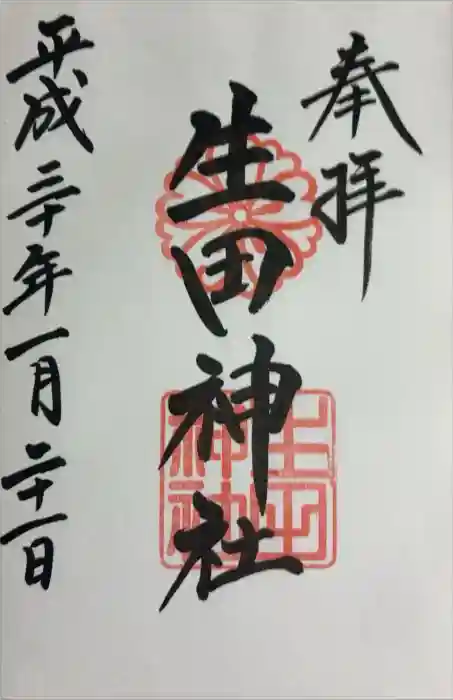 奉拝
生田神社
平成三十年一月二十一日
生田
神社